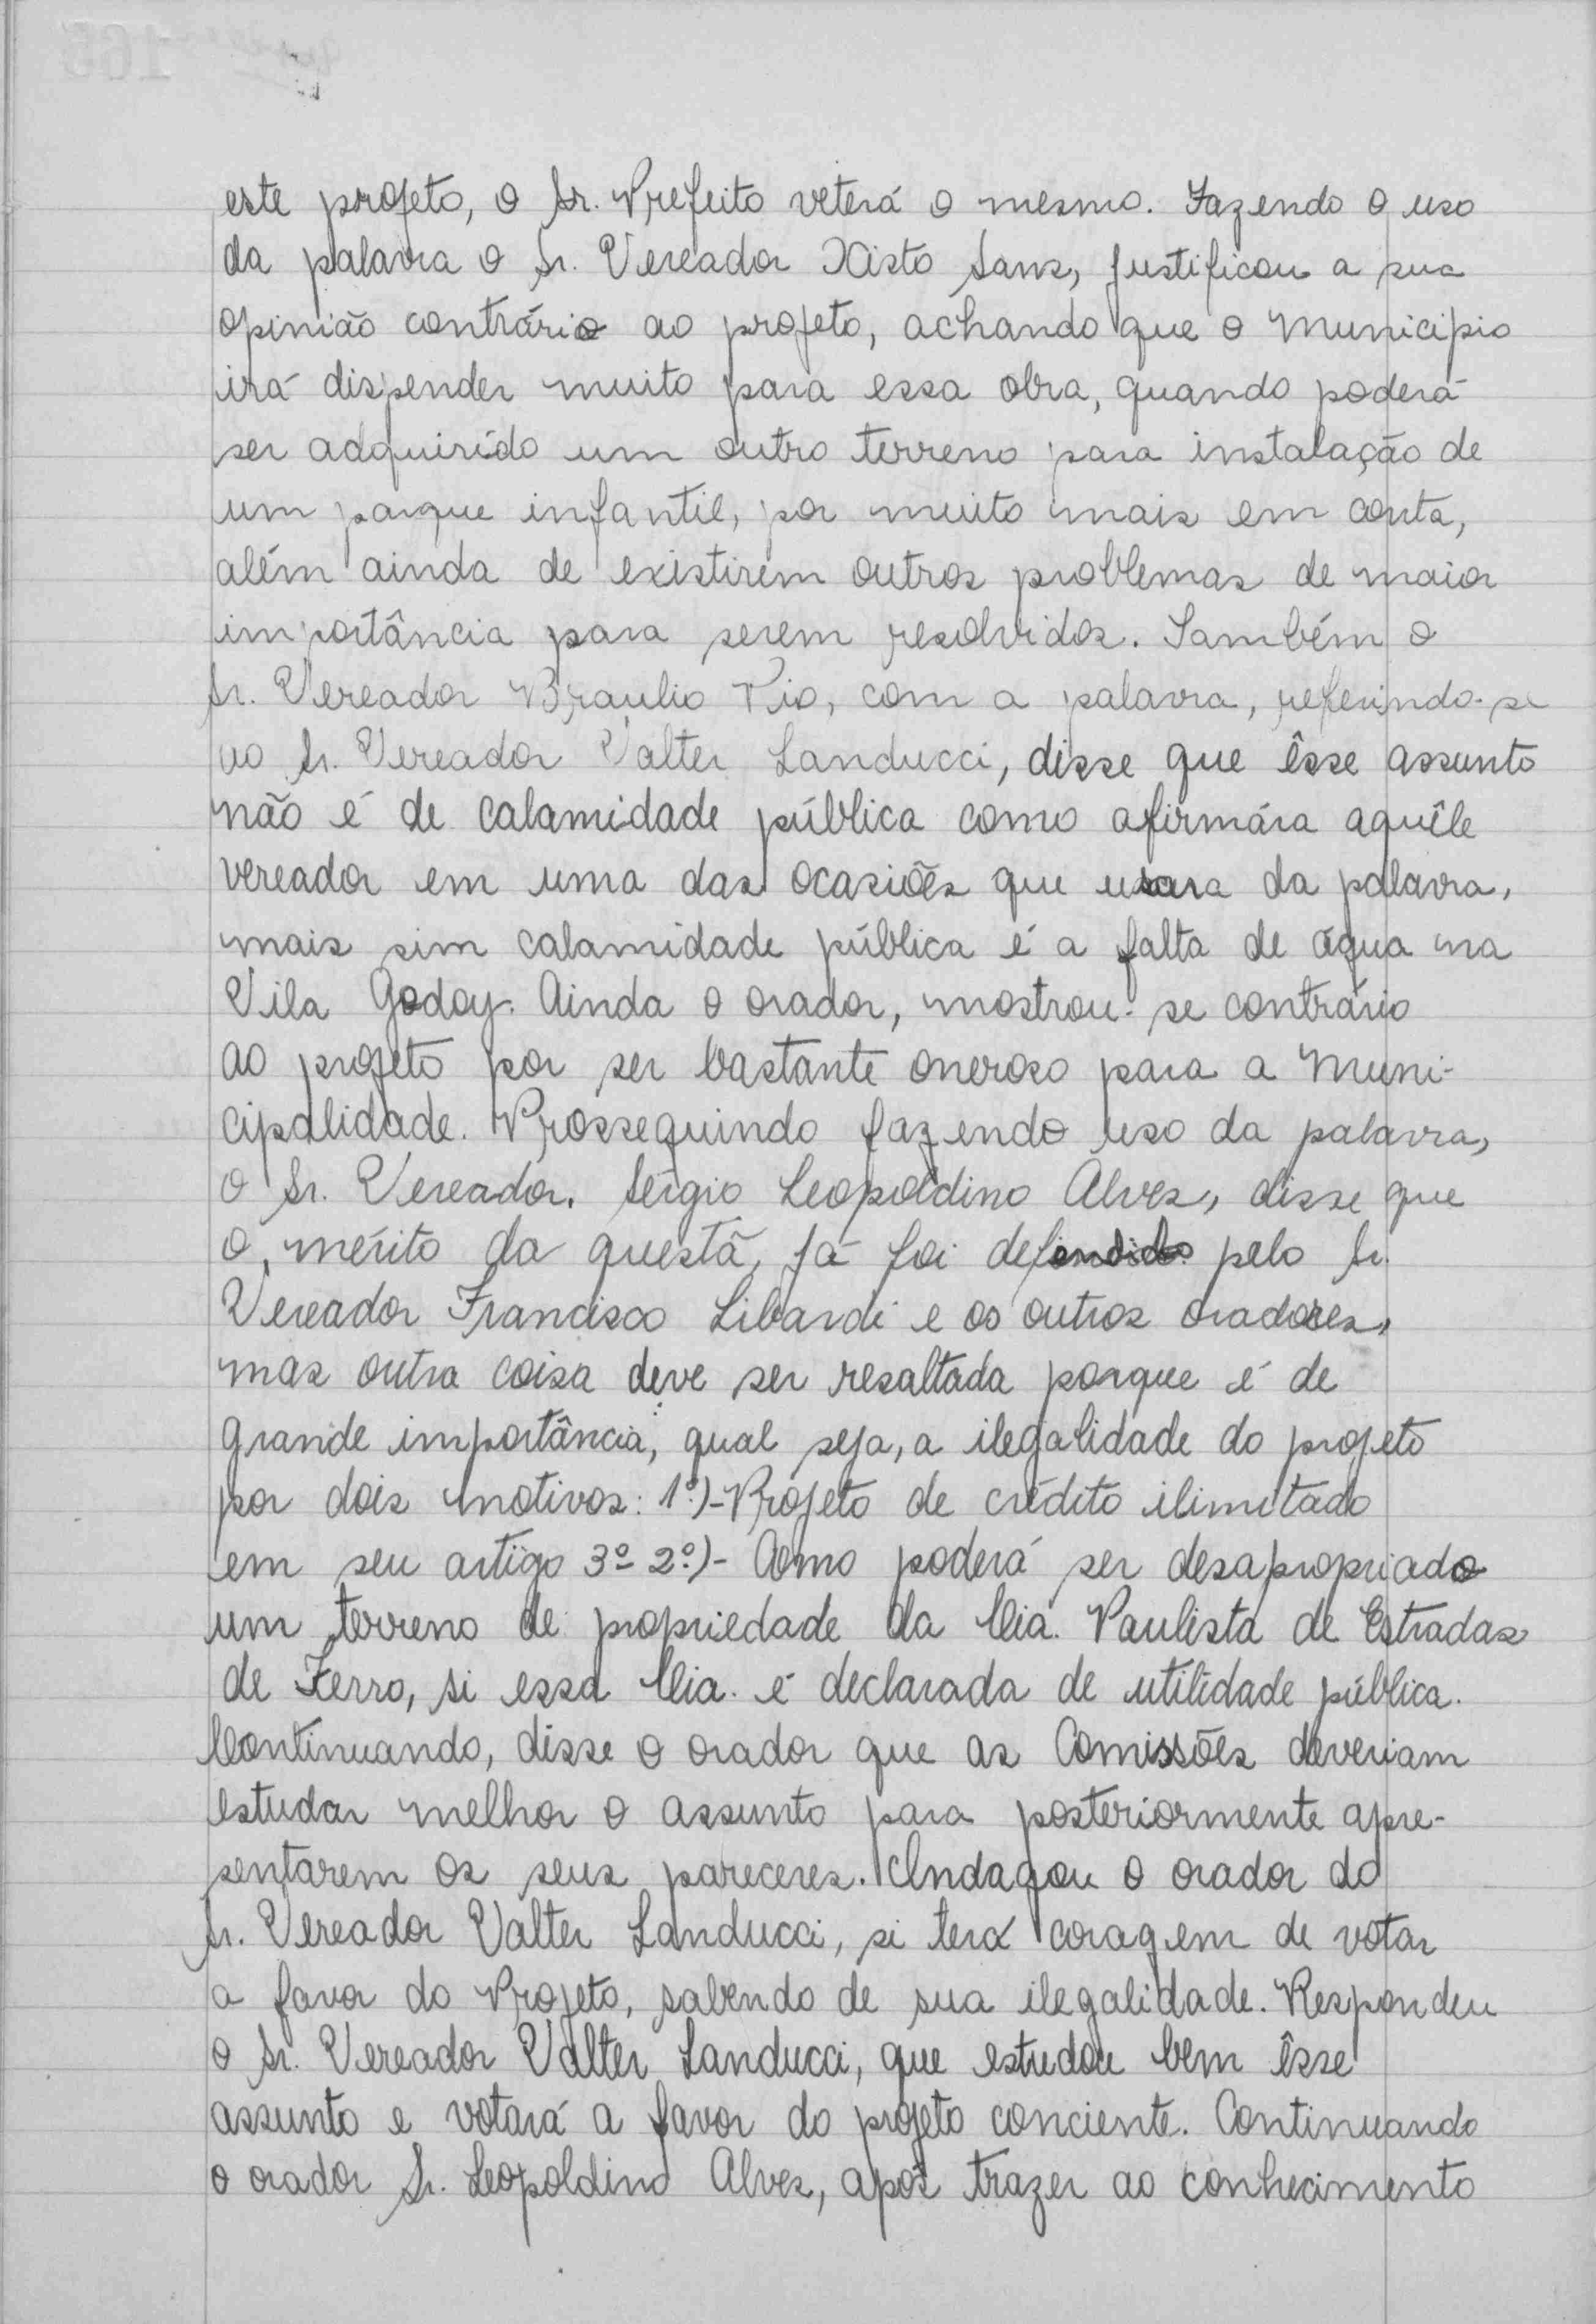 este projeto, o Sr. Prefeito veterá o mesmo. Fazendo o uso
da palavra o Sr. Vereador Xisto Sans, justificou a sua
opinião contrário ao projeto, achando que o Municipio
irá dispender muito para essa obra, quando poderá
ser adquirido um outro terreno para instalação de
um parque infantil, por muito mais em conta,
além ainda de existirem outros problemas de maior
importância para serem resolvidos. Também o
Sr. Vereador Braulio Pio, com a palavra, referindo-se
ao Sr. Vereador Valter Landucci, disse que êsse assunto
não é de calamidade pública como afirmára aquêle
vereador em uma das ocasiões que usara da palavra,
mais sim calamidade pública é a falta de água na
Vila Godoy. Ainda o orador, mostrou-se contrário
ao projeto por ser bastante oneroso para a Muni-
cipalidade. Prosseguindo fazendo uso da palavra,
o Sr. Vereador, Sérgio Leopoldino Alves, disse que
o, mérito da questã, já foi defendido pelo Sr.
Vereador Francisco Libardi e os outros oradores,
mas outra coisa deve ser resaltada porque é de
grande importância, qual seja, a ilegalidade do projeto
por dois motivos: 1º)-Projeto de crédito ilimitado
em seu artigo 3º 2º)- Como poderá ser desapropriado
um terreno de propriedade da Cia. Paulista de Estradas
de Ferro, si essa Cia. é declarada de utilidade pública.
Continuando, disse o orador que as Comissões deveriam
estudar melhor o assunto para posteriormente apre-
sentarem os seus pareceres. Indagou o orador do
Sr. Vereador Valter Landucci, si terá coragem de votar
a favor do Projeto, sabendo de sua ilegalidade. Respondeu
o Sr. Vereador Valter Landucci, que estudou bem êsse
assunto e votará a favor do projeto conciente. Continuando
o orador Sr. Leopoldino Alves, após trazer ao conhecimento